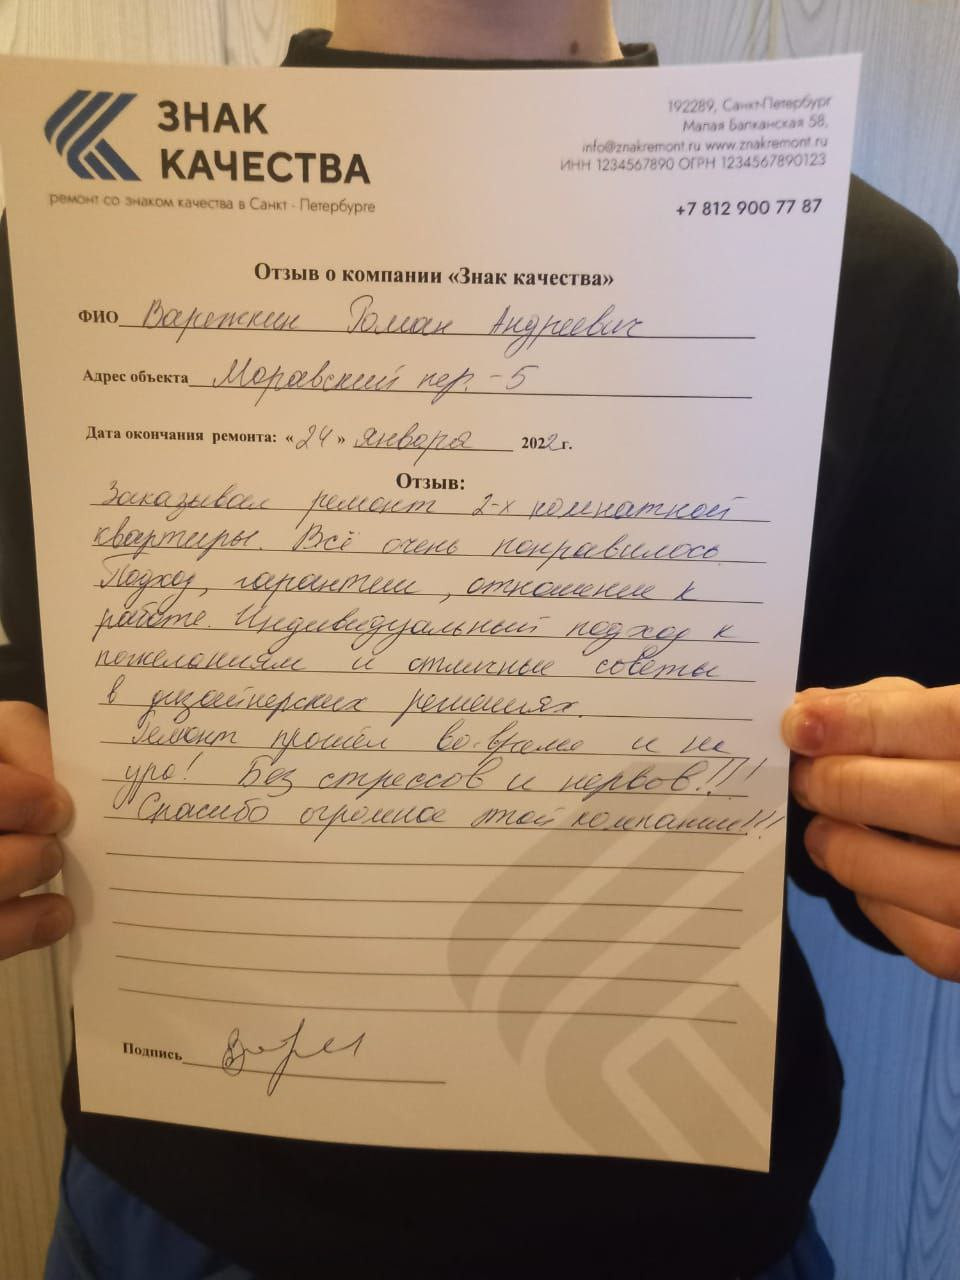 ЗНАК
КАЧЕСТВА
ремонт со знаком качества в Санкт - Петербурге
192289, Санкт-Петербург
Малая Балканская 58,
info@znakremont.ru www.znakremont.ru
ИНН 1234567890 ОГРН 1234567890123
+7 812 900 77 87
Отзыв о компании «Знак качества»
ФИО Варежкин Роман Андреевич
Адрес объекта Моравский пер. - 5
Дата окончания ремонта: «24» января 2022г.
Отзыв:
Заказывал ремонт 2-х комнатной
квартиры. Всё очень понравилось.
Подход, гарантии, отношение к
работе. Индивидуальный подход к
пожеланиям и отличные советы
в дизайнерских решениях.
Ремонт прошёл во-время и на
ура! Без стрессов и нервов!!!
Спасибо огромное этой компании!!!
Подпись